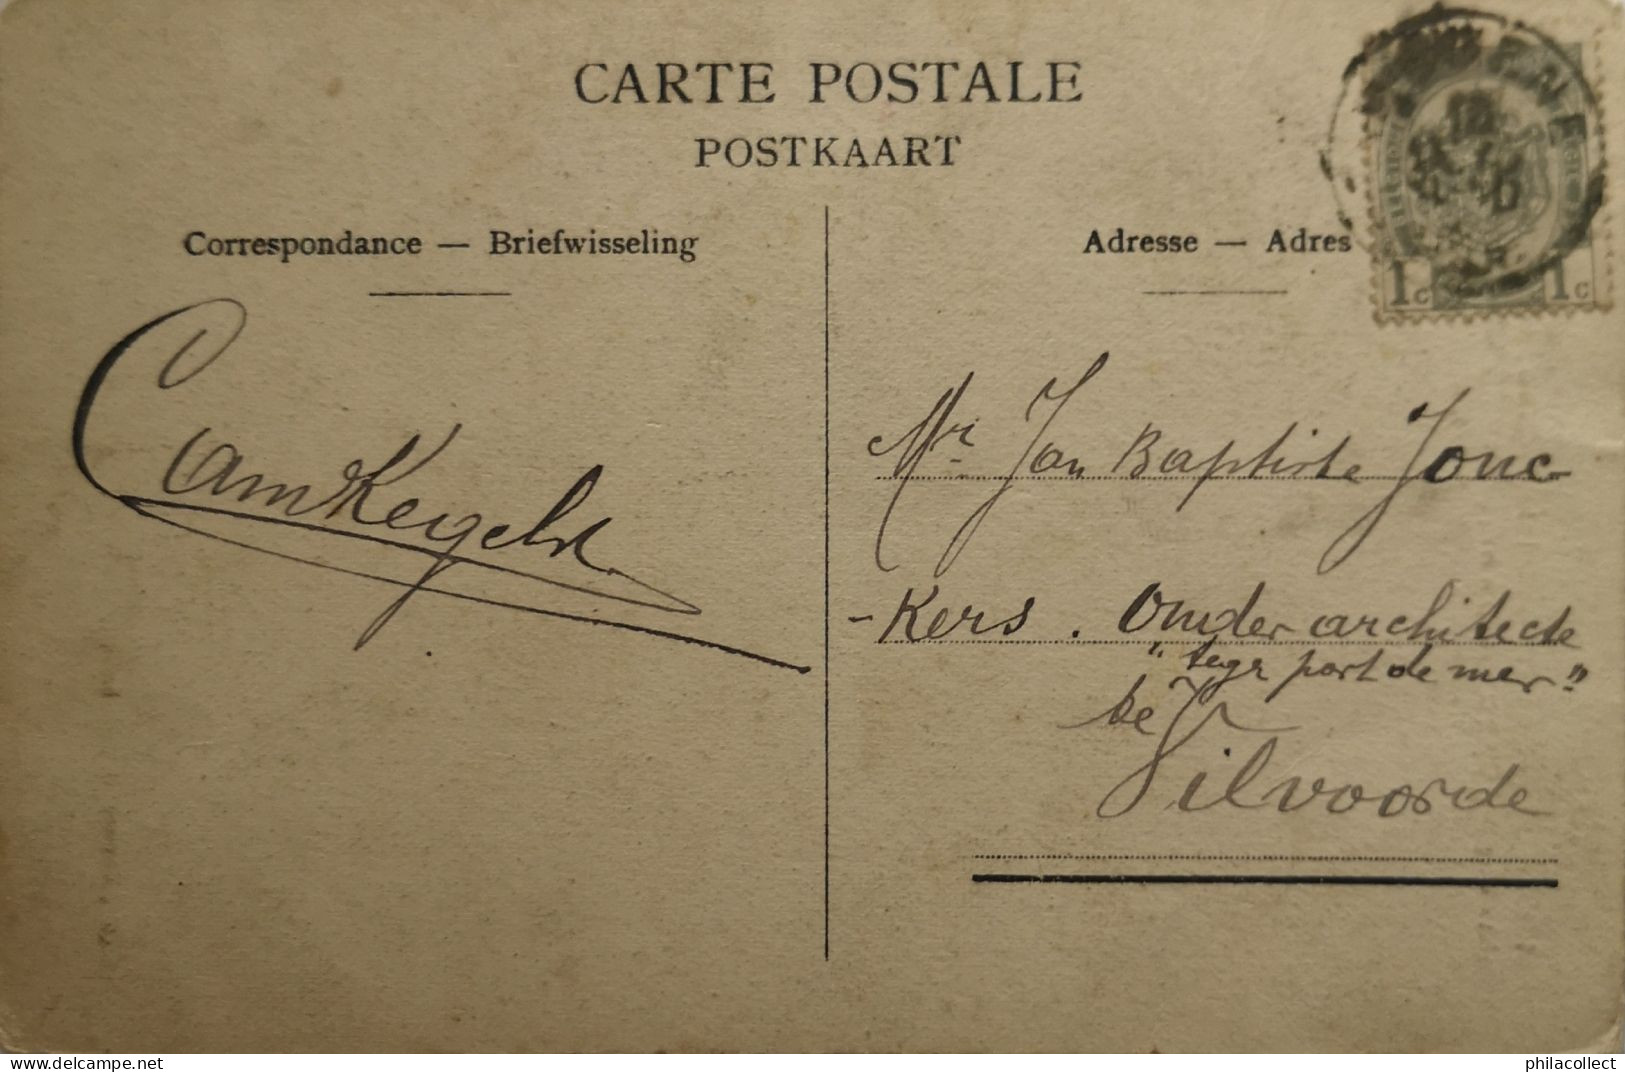 CARTE POSTALE
POSTKAART
Correspondance — Briefwisseling
Adresse — Adres
1c 1c
Mr Jan Baptiste Jonc-
-kers. Onder architecte
" port de mer"
te
Vilvoorde
philacollect